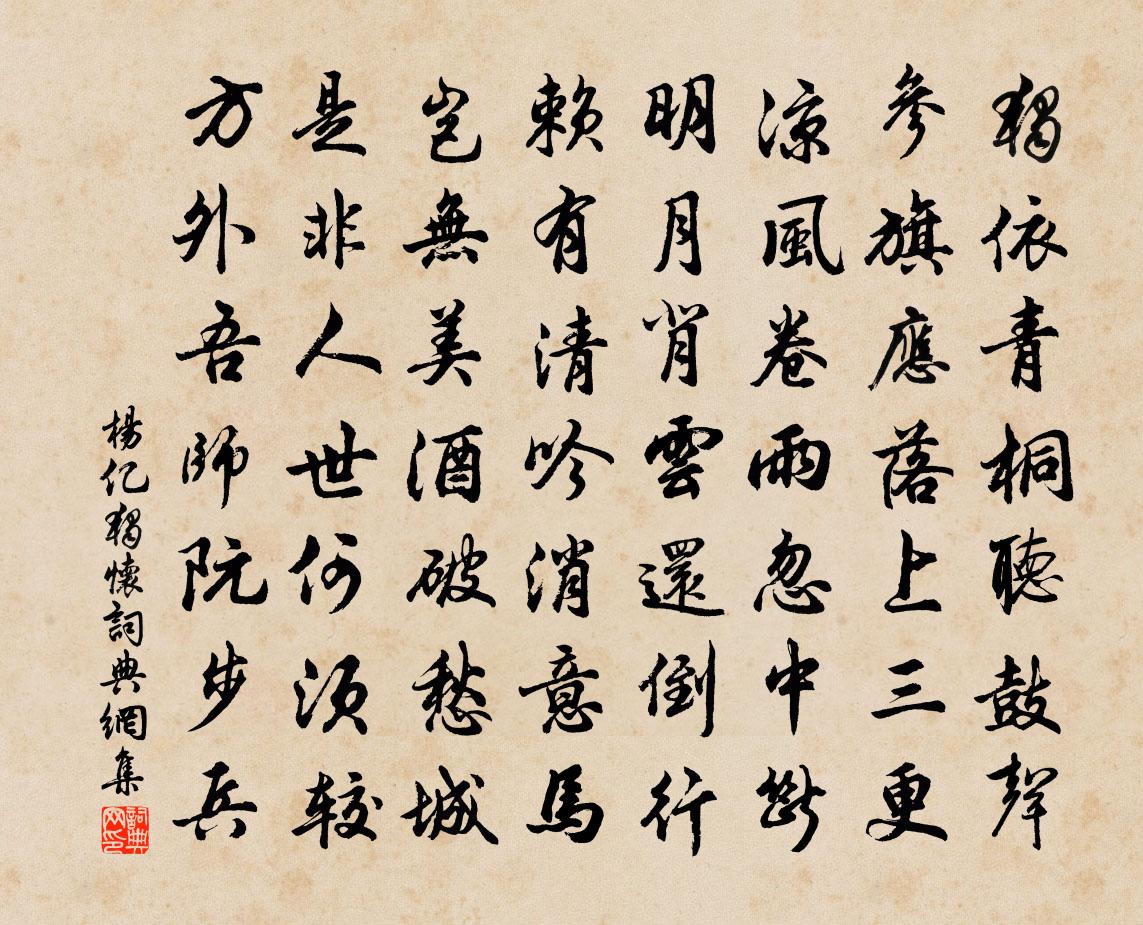 獨依青桐聽鼓聲
參旗應落上三更
涼風卷雨忽中斷
明月背雲還倒行
賴有清吟消意馬
豈無美酒破愁城
是非人世何須較
方外吾師阮步兵
楊億獨懷詞典網集
詞典网印